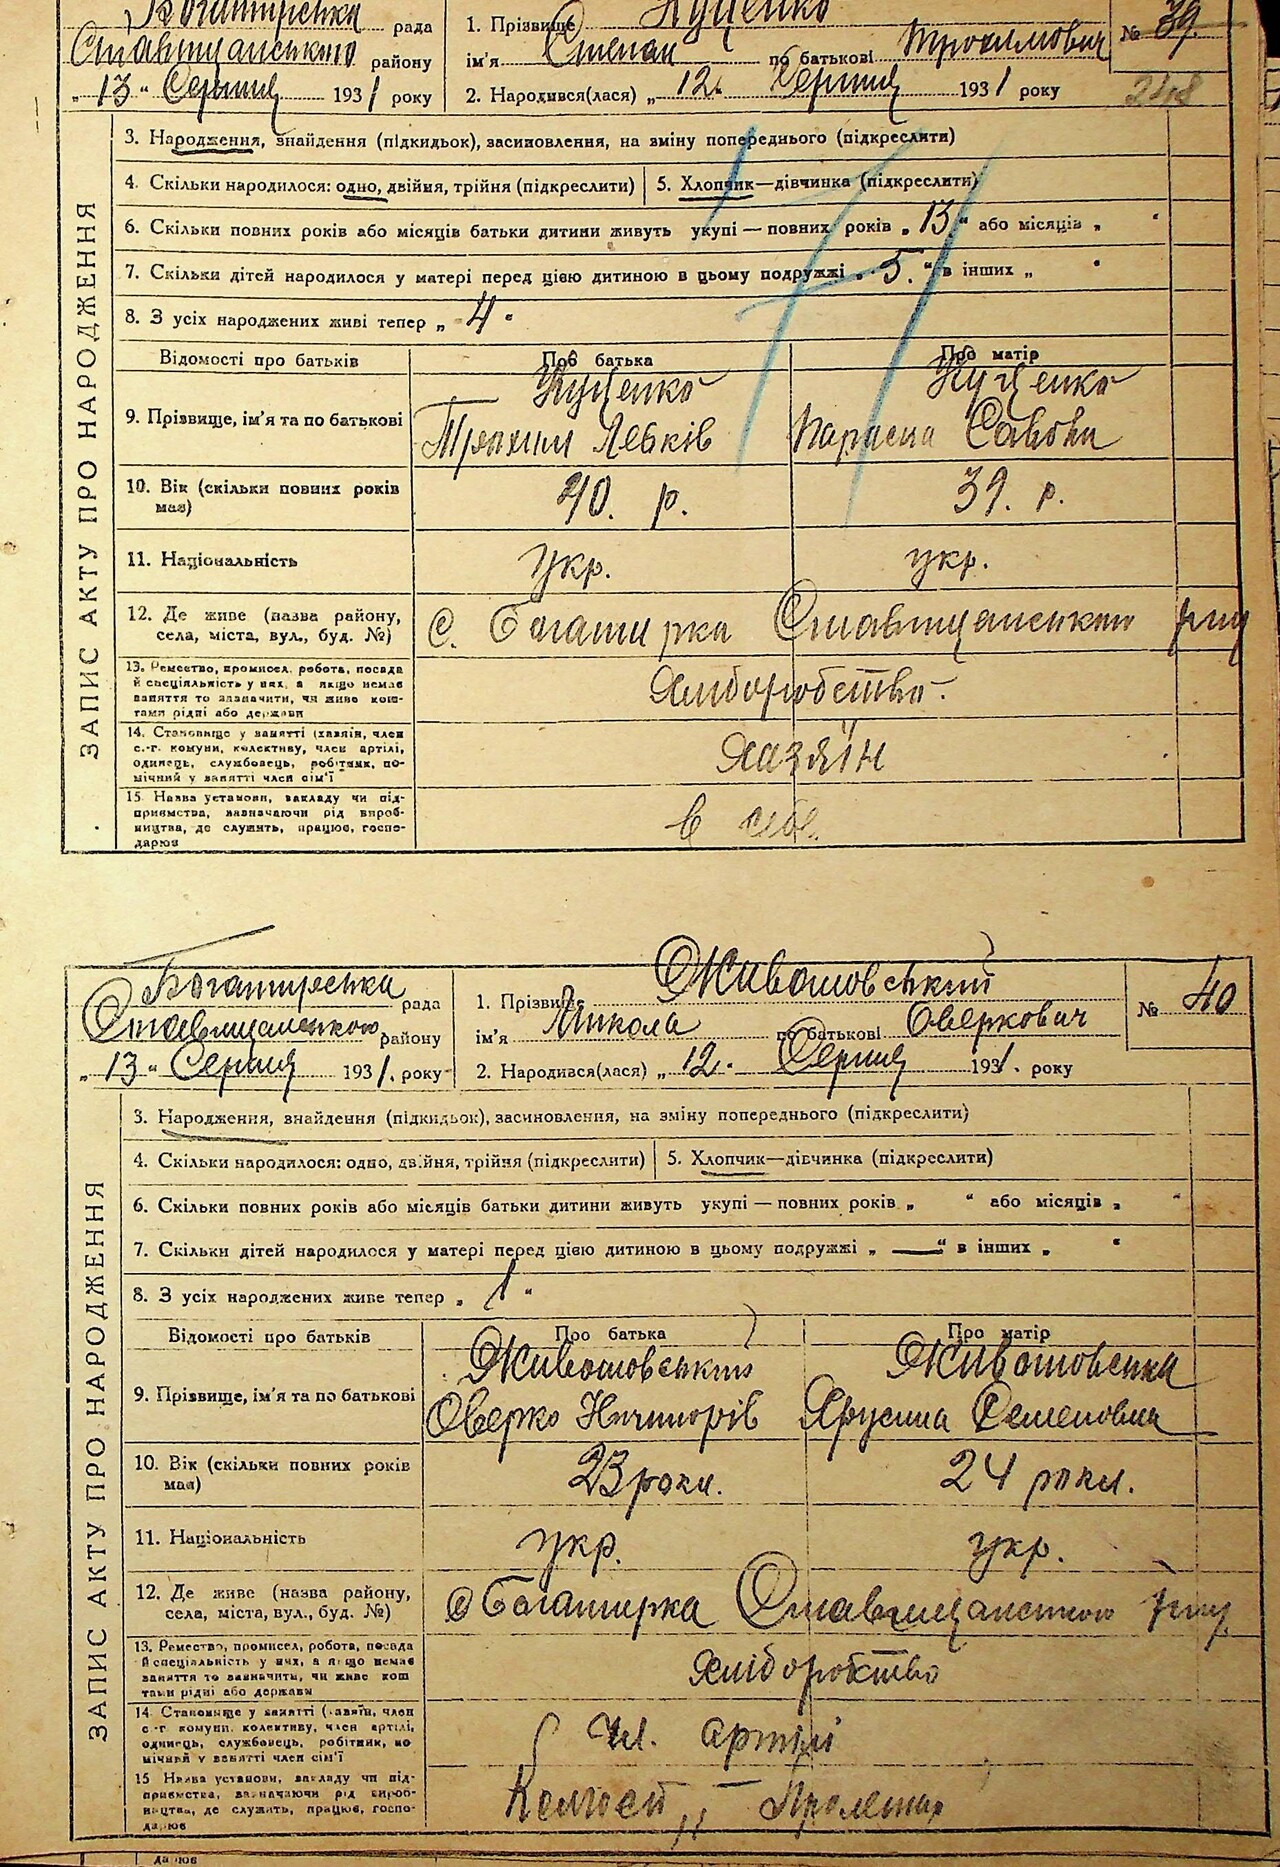 Богатирська рада
Ставищанського району
„ 13 “ Серпня 1931 року
1. Прізвище Куценко
ім'я Степан по батькові Трохимович
2. Народився(лася) „ 12. Серпня 1931 року
№ 39.
248
ЗАПИС АКТУ ПРО НАРОДЖЕННЯ
3. Народження, знайдення (підкидьок), засиновлення, на зміну попереднього (підкреслити)
4. Скільки народилося: одно, двійня, трійня (підкреслити) 5. Хлопчик—дівчинка (підкреслити)
6. Скільки повних років або місяців батьки дитини живуть укупі — повних років „ 13. “ або місяців „ “
7. Скільки дітей народилося у матері перед цією дитиною в цьому подружжі „ 5. “ в інших „ “
8. З усіх народжених живі тепер „ 4 “
Відомості про батьків Про батька Про матір
9. Прізвище, ім'я та по батькові
Куценко
Трохим Левків
Куценко
Параска Савовн
10. Вік (скільки повних років має)
40. р. 39. р.
11. Національність укр. укр.
12. Де живе (назва району,
села, міста, вул., буд. №)
с. Богатирка Ставищанського р-ну
13. Ремество, промисел, робота, посада
й спеціяльність у них, а якщо немає
заняття то зазначити, чи живе кош-
тами рідні або держави
Хліборобство.
14. Становище у занятті (хазяїн, член
с.-г. комуни, колективу, член артілі,
одинець, службовець, робітник, по-
мічний у занятті член сім'ї
Хазяїн
15. Назва установи, закладу чи під-
приємства, зазначаючи рід вироб-
ництва, де служить, працює, госпо-
дарює
в себе.
Богатирська рада
Ставищанського району
„ 13 “ Серпня 1931. року
1. Прізвище Животовський
ім'я Микола по батькові Оверкович
2. Народився(лася) „ 12. Серпня 1931. року
№ 40
ЗАПИС АКТУ ПРО НАРОДЖЕННЯ
3. Народження, знайдення (підкидьок), засиновлення, на зміну попереднього (підкреслити)
4. Скільки народилося: одно, двійня, трійня (підкреслити) 5. Хлопчик—дівчинка (підкреслити)
6. Скільки повних років або місяців батьки дитини живуть укупі — повних років „ “ або місяців „ “
7. Скільки дітей народилося у матері перед цією дитиною в цьому подружжі „ — “ в інших „ “
8. З усіх народжених живе тепер „ 1 “
Відомості про батьків Про батька Про матір
9. Прізвище, ім'я та по батькові
Животовський
Оверко Ничипорів
Животовська
Ярусина Семеновна
10. Вік (скільки повних років має)
23 роки. 24 роки.
11. Національність укр. укр.
12. Де живе (назва району,
села, міста, вул., буд. №)
с Богатирка Ставищанського р-ну.
13. Ремество, промисел, робота, посада
й спеціяльність у них, а якщо немає
заняття то зазначити, чи живе кош
тами рідні або держави
Хліборобство
14. Становище у занятті (хазяїн, член
с.-г. комуни, колективу, член артілі,
одинець, службовець, робітник, по
мічний у занятті член сім'ї
Чл. артілі
15 Назва установи, закладу чи під-
приємства, зазначаючи рід вироб-
ництва, де служить, працює, госпо-
дарює
Колгосп „ Пролетар
дарює